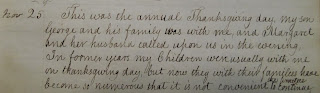 Nov 25. This was the annual Thanksgiving day, my son
George and his family was with me, and Margaret
and her husband called upon us in the evening.
In former years my Children were usually with me
on thanksgiving day, but now they with their families have
become so numerous that it is not convenient to continue